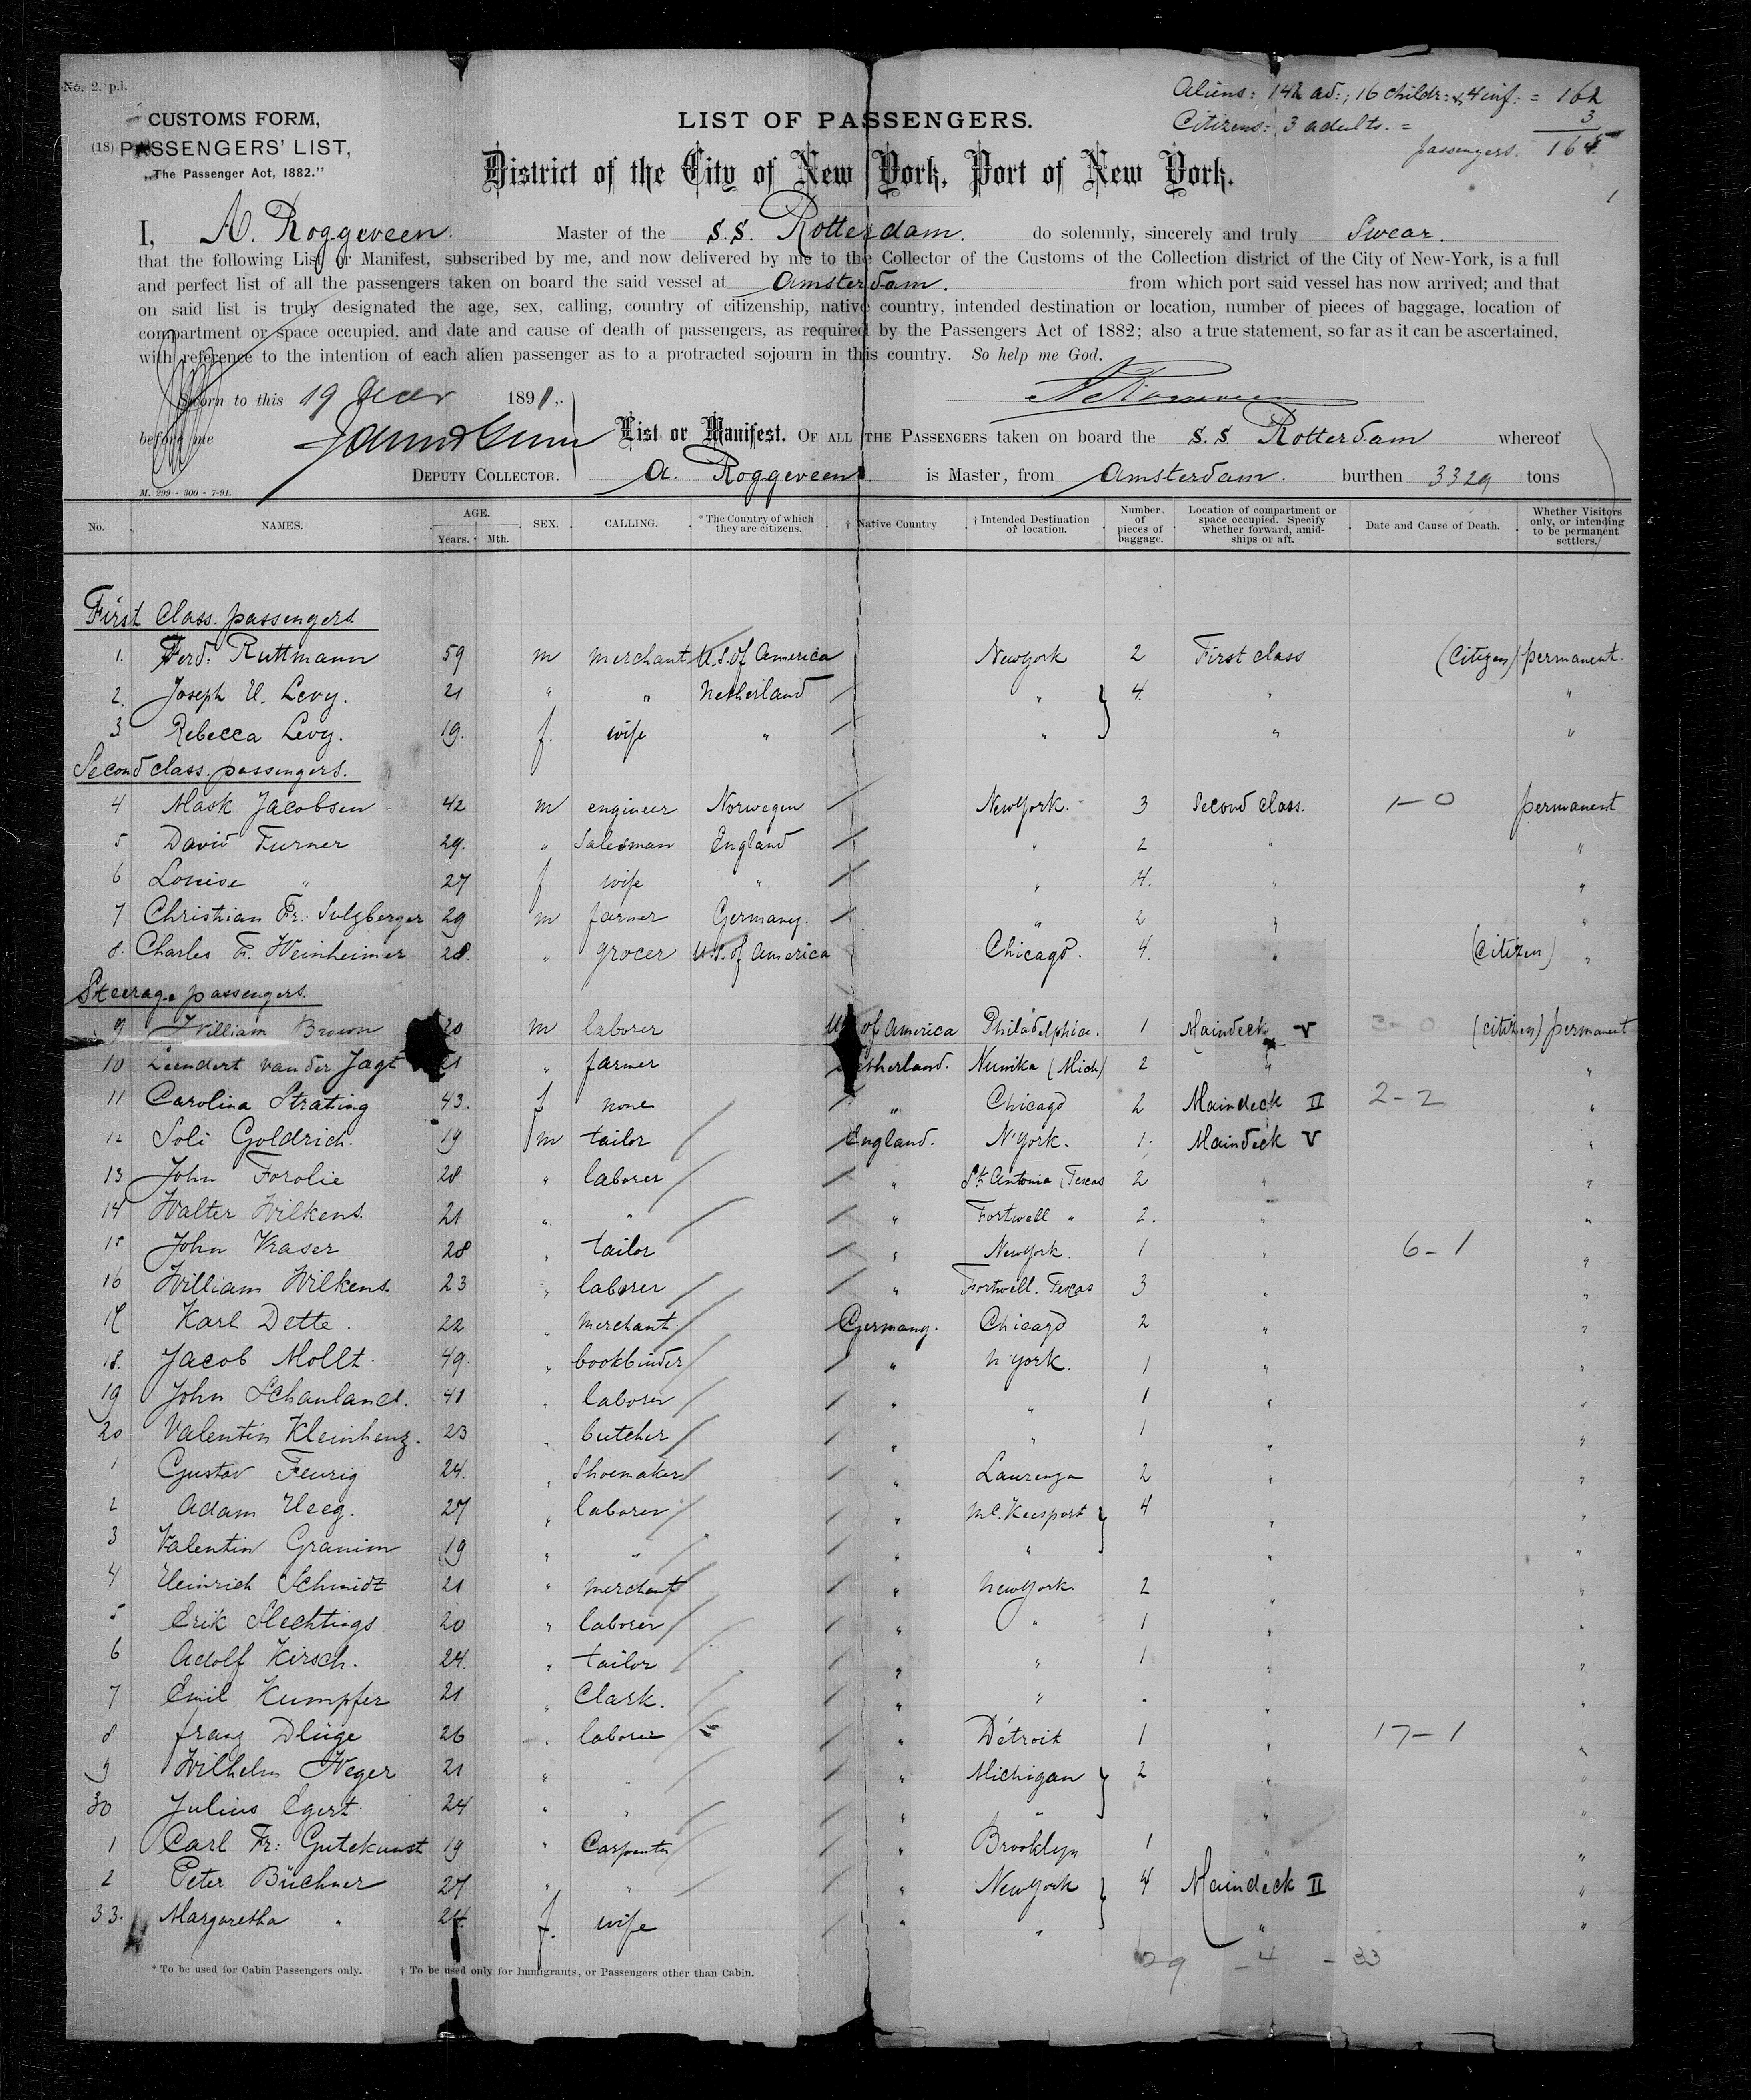 No. 2. p.l.
Aliens: 142 ad:; 16 childr: & 4 inf: = 162
CUSTOMS FORM,
LIST OF PASSENGERS.
Citizens: 3 adults. = 3
(18) PASSENGERS' LIST,
passengers. 165
"The Passenger Act, 1882."
District of the City of New York, Port of New York.
1
I, A. Roggeveen. Master of the S.S. Rotterdam. do solemnly, sincerely and truly Swear.
that the following List or Manifest, subscribed by me, and now delivered by me to the Collector of the Customs of the Collection district of the City of New-York, is a full
and perfect list of all the passengers taken on board the said vessel at Amsterdam. from which port said vessel has now arrived; and that
on said list is truly designated the age, sex, calling, country of citizenship, native country, intended destination or location, number of pieces of baggage, location of
compartment or space occupied, and date and cause of death of passengers, as required by the Passengers Act of 1882; also a true statement, so far as it can be ascertained,
with reference to the intention of each alien passenger as to a protracted sojourn in this country. So help me God.
Sworn to this 19 Decr 1891,
before me
List or Manifest. OF ALL THE PASSENGERS taken on board the S.S. Rotterdam whereof
DEPUTY COLLECTOR. A. Roggeveen. is Master, from Amsterdam. burthen 3329 tons
M. 299 - 300 - 7-91.
No. NAMES. AGE. Years. Mth. SEX. CALLING. * The Country of which they are citizens. † Native Country † Intended Destination or location. Number. of pieces of baggage. Location of compartment or space occupied. Specify whether forward, amidships or aft. Date and Cause of Death. Whether Visitors only, or intending to be permanent settlers.
First Class. passengers.
1. Ferd: Ruttmann 59 m merchant U.S. of America New york 2 First class (Citizen) permanent.
2. Joseph U. Levy. 21 " " Netherland / " 4. " "
3 Rebecca Levy. 19. f. wife " / " " "
Second class. passengers.
4 Mask Jacobsen 42 m engineer Norwegen / New york. 3 Second Class. 1-0 permanent
5 David Turner 29. " Salesman England / " 2 " "
6 Louise " 27 f wife " / " 4. " "
7 Christian Fr: Sulzberger 29 m farmer Germany. / " 2 " "
8. Charles F. Weinheimer 28. " grocer U.S. of America Chicago. 4. " (Citizen) "
Steerage passengers.
9 William Brown 20 m laborer of America Philadelphia. 1 Maindeck V 3-0 (citizen) permanent
10 Leendert van der Jagt 21 " farmer Netherland. (Mich) 2 " "
11 Carolina Strating 43. f none / " Chicago 2 Maindeck II 2-2 "
12 Soli Goldrich. 19 m tailor / England. N'York. 1. Maindeck V "
13 John Forolie 28 " laborer / / " St Antonia, Texas 2 " "
14 Walter Wilkens. 21 " " / / " Fortwell " 2. " "
15 John Kraser 28 " tailor / " New york. 1 " 6-1 "
16 William Wilkens. 23 " laborer / / " Fortwell. Texas 3 " "
17 Karl Dette. 22 " merchant. / Germany. Chicago 2 " "
18. Jacob Mollt. 49. " bookbinder / / " N'york. 1 " "
19 John Schauland. 41 " laborer / / " " 1 " "
20 Valentin Kleinhenz. 23 " butcher / / " " 1 " "
1 Gustav Feurig 24. " Shoemaker / / " 2 " "
2 Adam Heeg. 27 " laborer / / " Mc. Keesport 4 " "
3 Valentin Granim 19 " " / / " " " "
4 Heinrich Schmidt 21 " merchant / / " New york. 2 " "
5 Erik Slechtings 20 " laborer / / " " 1 " "
6 Adolf Kirsch. 24. " tailor / / " " 1 " "
7 Emil Kumpfer 21 " Clark. / / " " . " "
8 franz Dlüge 26 " laborer / = / " Détroit 1 " 17-1 "
9 Wilhelm Weger 21 " " / / " Michigan 2 " "
30 Julius Egert. 24 " " / / " " " "
1 Carl Fr: Gutekunst 19 " Carpenter / / " Brooklyn 1 " "
2 Peter Büchner 27 " " / / " New york 4 Maindeck II "
33. Margaretha " 24. f. wife / " " " "
29 - 4 - 33
* To be used for Cabin Passengers only. † To be used only for Immigrants, or Passengers other than Cabin.